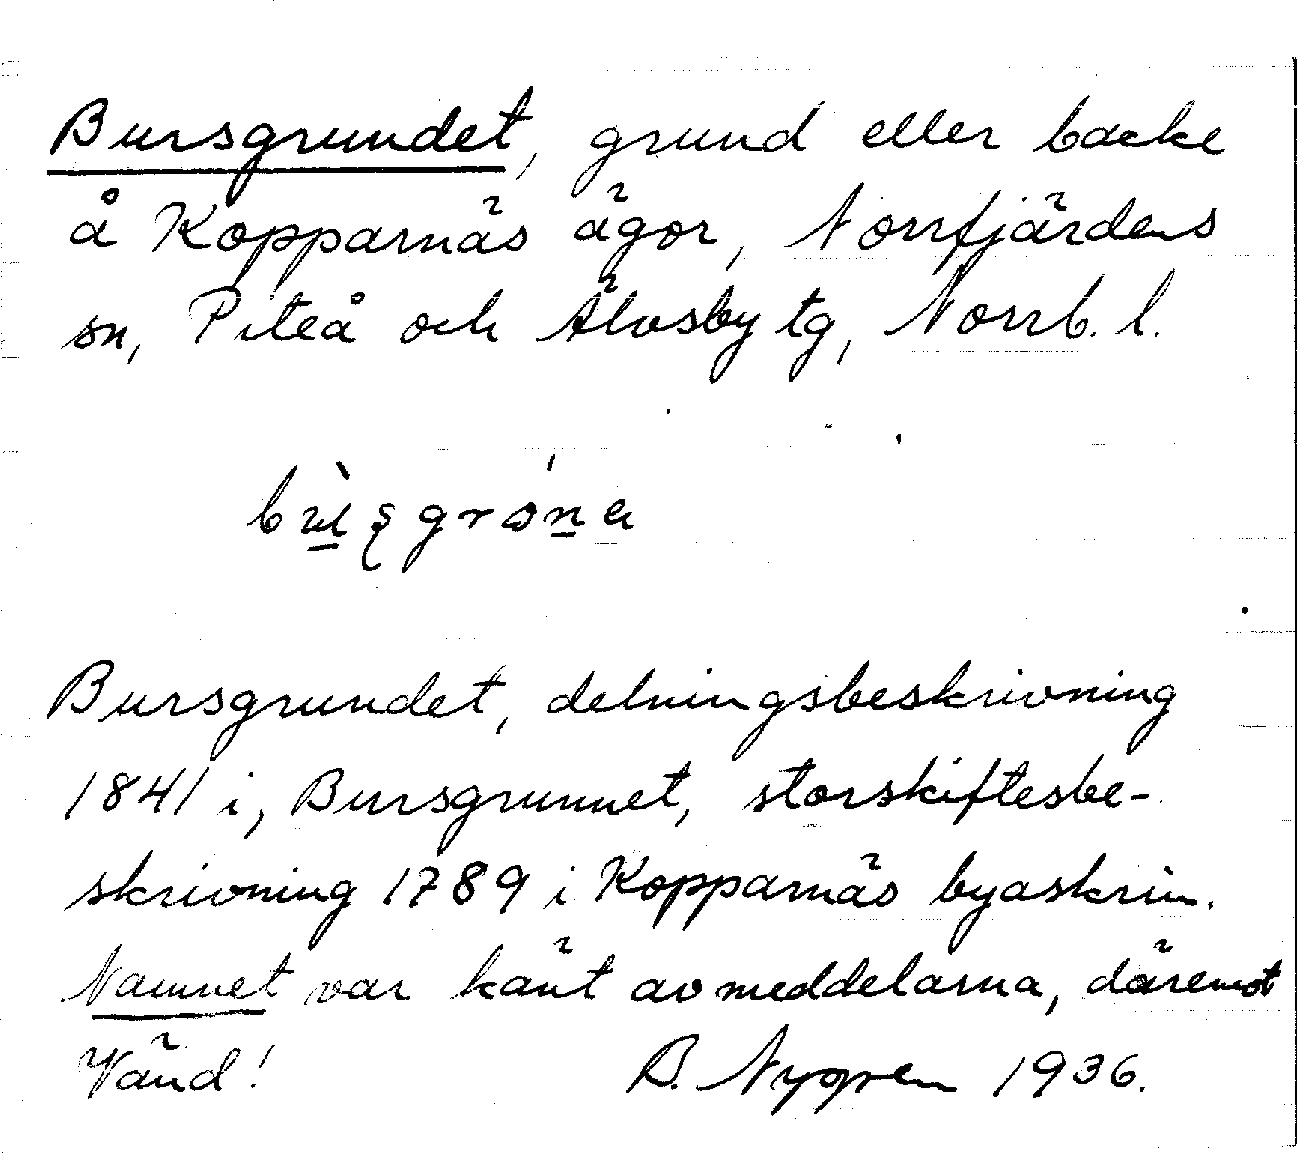 Bursgrundet, grund eller backe
å Kopparnäs ägor, Norrfjärdens
sn, Piteå och Älvsby tg, Norrb. l.
Bursgrundet, delningsbeskrivning
1841 i, Bursgrunnet, storskiftesbe-
skrivning 1789 i Kopparnäs byaskrin.
Namnet var känt av meddelarna, däremot
Vänd! B. Nygren 1936.